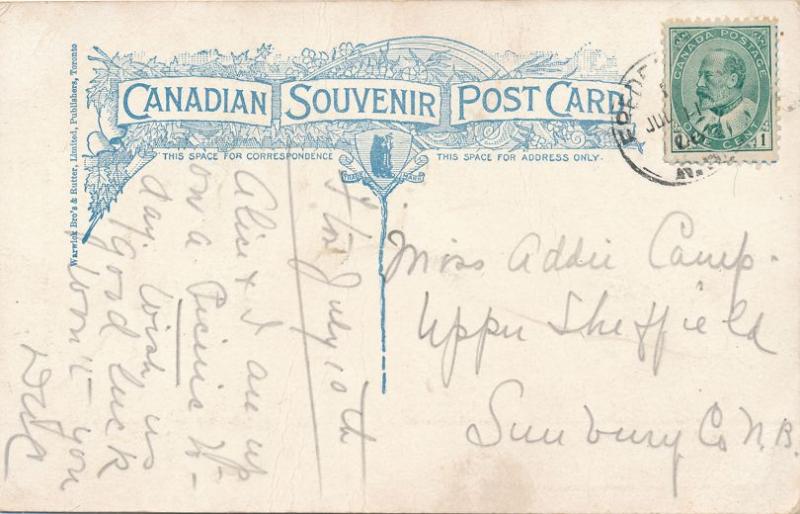 Warwick Bro's & Rutter, Limited, Publishers, Toronto
CANADIAN SOUVENIR POST CARD
THIS SPACE FOR CORRESPONDENCE
THIS SPACE FOR ADDRESS ONLY.
TRADE MARK
CANADA POSTAGE
ONE CENT
1
N.B.
July 10th
Alice & I are up
on a Picinic to-
day. Wish us
good luck
won't you
Miss Addie Camp.
Upper Sheffield
Sunbury Co N.B.